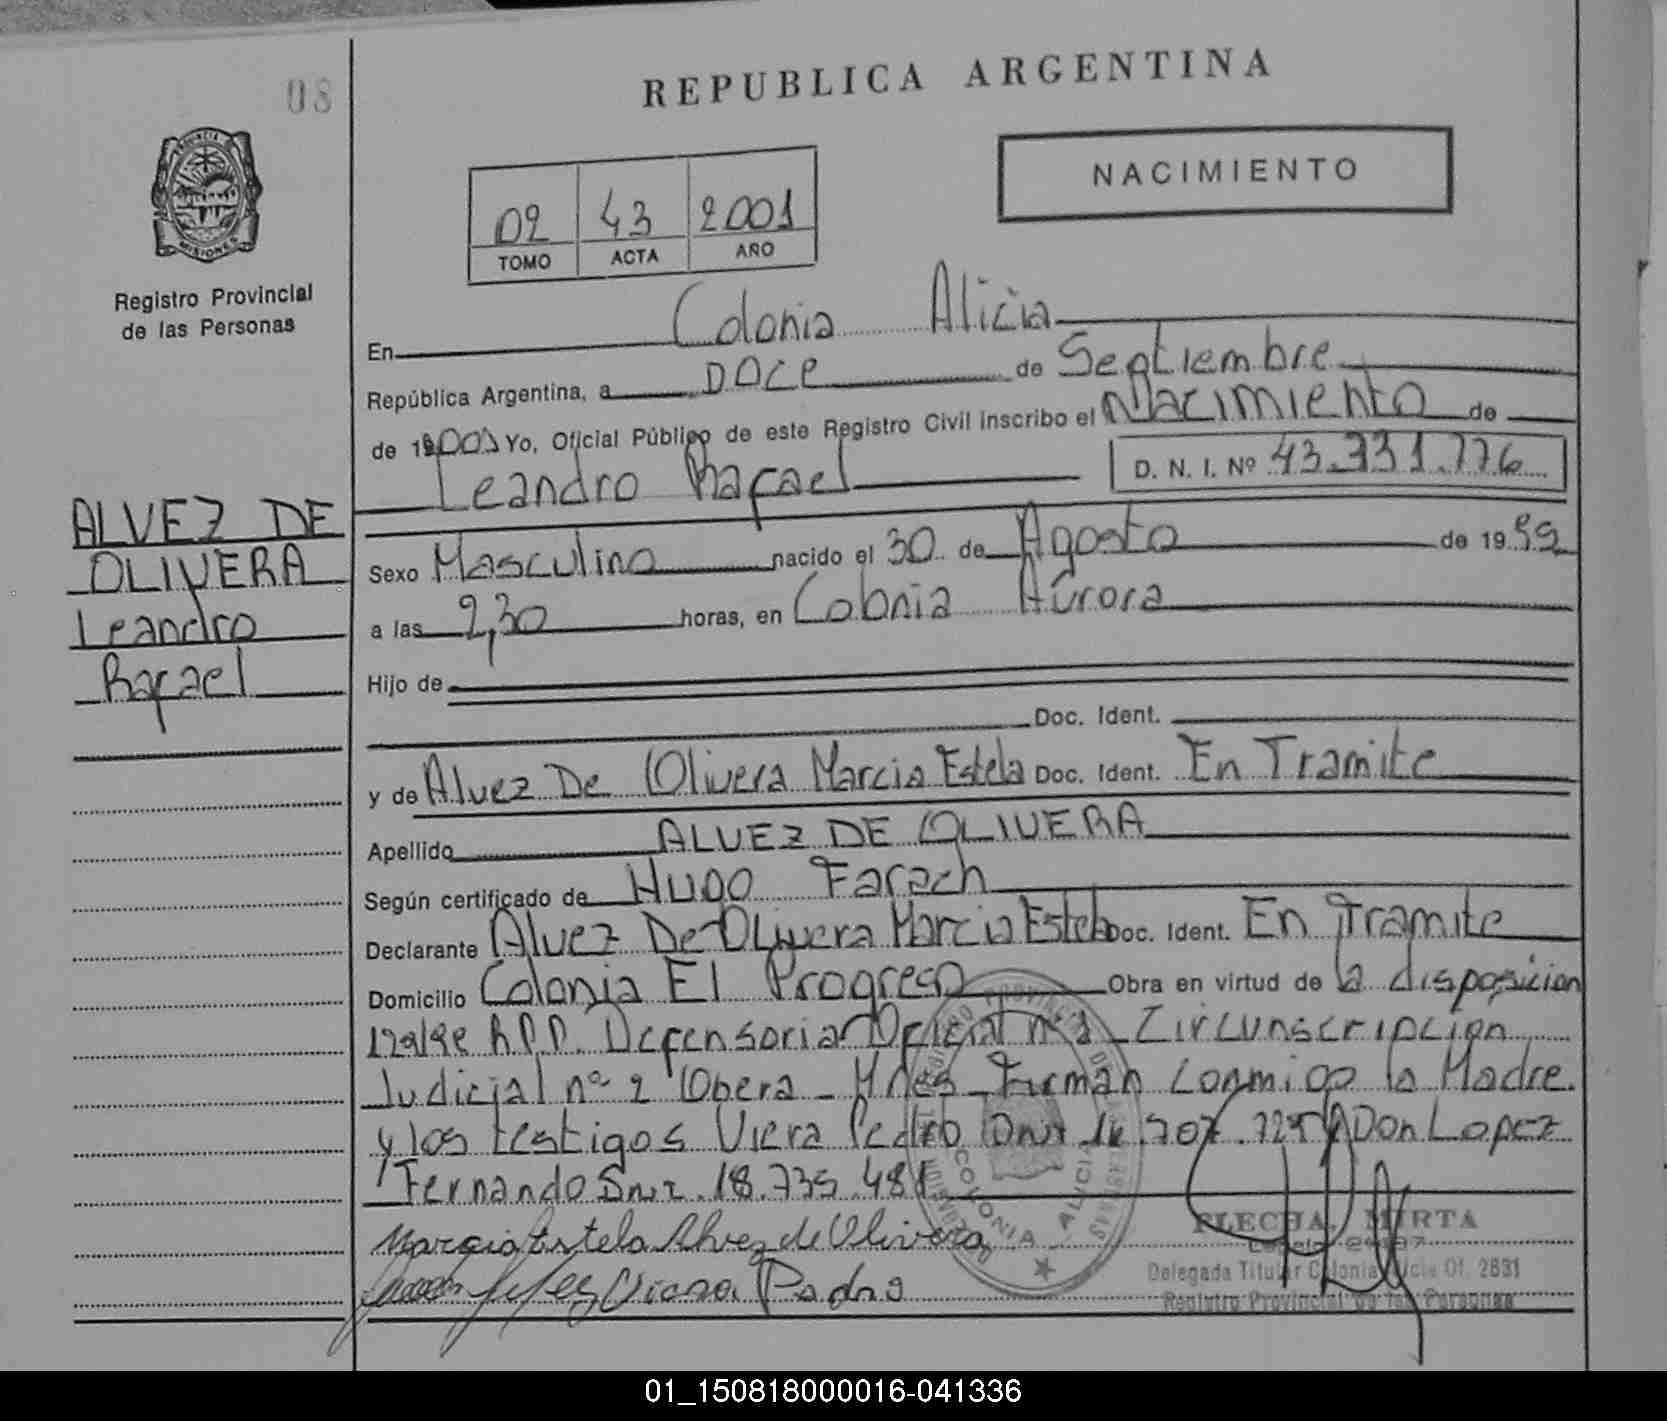 08
REPUBLICA ARGENTINA
PROVINCIA
MISIONES
Registro Provincial
de las Personas
NACIMIENTO
02 43 2001
TOMO ACTA AÑO
En Colonia Alicia
República Argentina, a DOCE de Septiembre
de 2001 Yo, Oficial Público de este Registro Civil inscribo el Nacimiento de
Leandro Rafael D. N. I. Nº 43.331.776
ALVEZ DE
OLIVERA
Leandro
Rafael
Sexo Masculino nacido el 30 de Agosto de 1999
a las 2,30 horas, en Colonia Aurora
Hijo de
Doc. Ident.
y de Alvez De Olivera Marcia Estela Doc. Ident. En Tramite
Apellido ALVEZ DE OLIVERA
Según certificado de HUGO Farach
Declarante Alvez De Olivera Marcia Estela Doc. Ident. En Tramite
Domicilio Colonia El Progreso Obra en virtud de la disposicion
R.P.P. Defensoria Oficial nº 1 Circunscripcion
Judicial nº 2 Obera - Mnes - Firman Conmigo la Madre
y los testigos Viera Pedro Dni 707.725 y Don Lopez
Fernando Dni. 18.735.481
COLONIA ALICIA
Marcia Estela Alvez de Olivera
Viera Pedro
FLECHA, MIRTA
Delegada Titular Colonia Alicia Of. 2831
Registro Provincial de las Personas
01_150818000016-041336